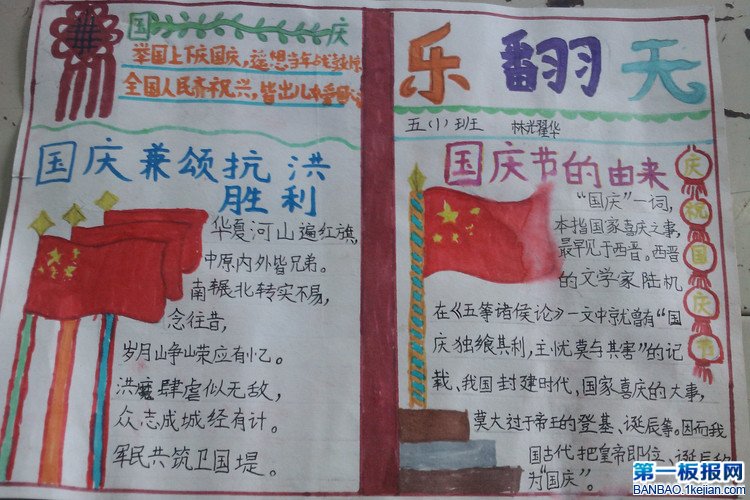 国庆
举国上下庆国庆，遥想当年战
全国人民齐祝兴，皆出儿
国庆兼颂抗洪
胜利
华夏河山遍红旗
中原内外皆兄弟。
南辗北转实不易，
念往昔，
岁月峥山荣应有忆。
洪魔肆虐似无敌，
众志成城经有计。
军民共筑卫国堤。
乐翻天
五（1）班 林光耀华
国庆节的由来
“国庆”一词，
本指国家喜庆之事，
最早见于西晋。西晋
的文学家陆机
在《五等诸侯论》一文中就曾有“国
庆独飨其利，主忧莫与其害”的记
载、我国封建时代，国家喜庆的大事，
莫大过于帝王的登基、诞辰等。因而我
国古代把皇帝即位、诞辰
为“国庆”。
庆祝国庆节
第一板报网
BANBAO.1kejian.com